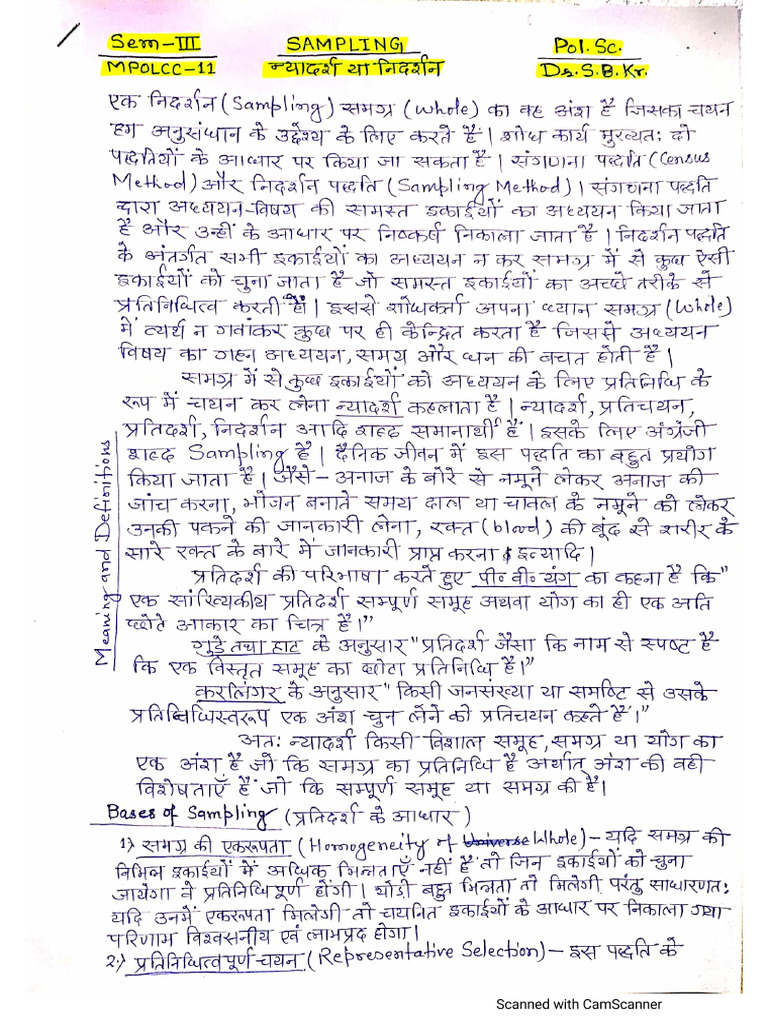 Sem-III SAMPLING Pol.Sc.
MPOLCC-11 न्यादर्श या निदर्शन Dr.S.B.Kr.
एक निदर्शन (Sampling) समग्र (Whole) का वह अंश है जिसका चयन
हम अनुसंधान के उद्देश्य के लिए करते हैं। शोध कार्य मुख्यतः दो
पद्धतियों के आधार पर किया जा सकता है। संगणना पद्धति (Census
Method) और निदर्शन पद्धति (Sampling Method)। संगणना पद्धति
द्वारा अध्ययन-विषय की समस्त इकाईयों का अध्ययन किया जाता
है और उन्हीं के आधार पर निष्कर्ष निकाला जाता है। निदर्शन पद्धति
के अंतर्गत सभी इकाईयों का अध्ययन न कर समग्र में से कुछ ऐसी
इकाईयों को चुना जाता है जो समस्त इकाईयों का अच्छे तरीके से
प्रतिनिधित्व करती हों। इससे शोधकर्त्ता अपना ध्यान समग्र (Whole)
में व्यर्थ न गवांकर कुछ पर ही केन्द्रित करता है जिससे अध्ययन
विषय का गहन अध्ययन, समय और धन की बचत होती है।
समग्र में से कुछ इकाईयों को अध्ययन के लिए प्रतिनिधि के
रूप में चयन कर लेना न्यादर्श कहलाता है। न्यादर्श, प्रतिचयन,
प्रतिदर्श, निदर्शन आदि शब्द समानार्थी हैं। इसके लिए अंग्रेजी
शब्द Sampling है। दैनिक जीवन में इस पद्धति का बहुत प्रयोग
किया जाता है। जैसे- अनाज के बोरे से नमूने लेकर अनाज की
जांच करना, भोजन बनाते समय दाल या चावल के नमूने को लेकर
उनकी पकने की जानकारी लेना, रक्त (blood) की बूंद से शरीर के
सारे रक्त के बारे में जानकारी प्राप्त करना इत्यादि।
Meaning and Definitions
प्रतिदर्श की परिभाषा करते हुए पी० वी० यंग का कहना है कि"
एक सांख्यिकीय प्रतिदर्श सम्पूर्ण समूह अथवा योग का ही एक अति
छोटे आकार का चित्र है।"
गुडे तथा हाट के अनुसार "प्रतिदर्श जैसा कि नाम से स्पष्ट है
कि एक विस्तृत समूह का छोटा प्रतिनिधि है।"
करलिंगर के अनुसार "किसी जनसंख्या या समष्टि से उसके
प्रतिनिधिस्वरूप एक अंश चुन लेने को प्रतिचयन कहते हैं।"
अतः न्यादर्श किसी विशाल समूह, समग्र या योग का
एक अंश है जो कि समग्र का प्रतिनिधि है अर्थात् अंश की वही
विशेषताएँ हैं जो कि सम्पूर्ण समूह या समग्र की है।
Bases of Sampling (प्रतिदर्श के आधार)
1) समग्र की एकरूपता (Homogeneity of Universe Whole)- यदि समग्र की
विभिन्न इकाईयों में अधिक भिन्नताएँ नहीं है तो जिन इकाईयों को चुना
जायेगा वे प्रतिनिधिपूर्ण होंगी। थोड़ी बहुत भिन्नता तो मिलेगी परंतु साधारणतः
यदि उनमें एकरूपता मिलेगी तो चयनित इकाईयों के आधार पर निकाला गया
परिणाम विश्वसनीय एवं लाभप्रद होगा।
2) प्रतिनिधित्वपूर्ण चयन (Representative Selection)- इस पद्धति के
Scanned with CamScanner